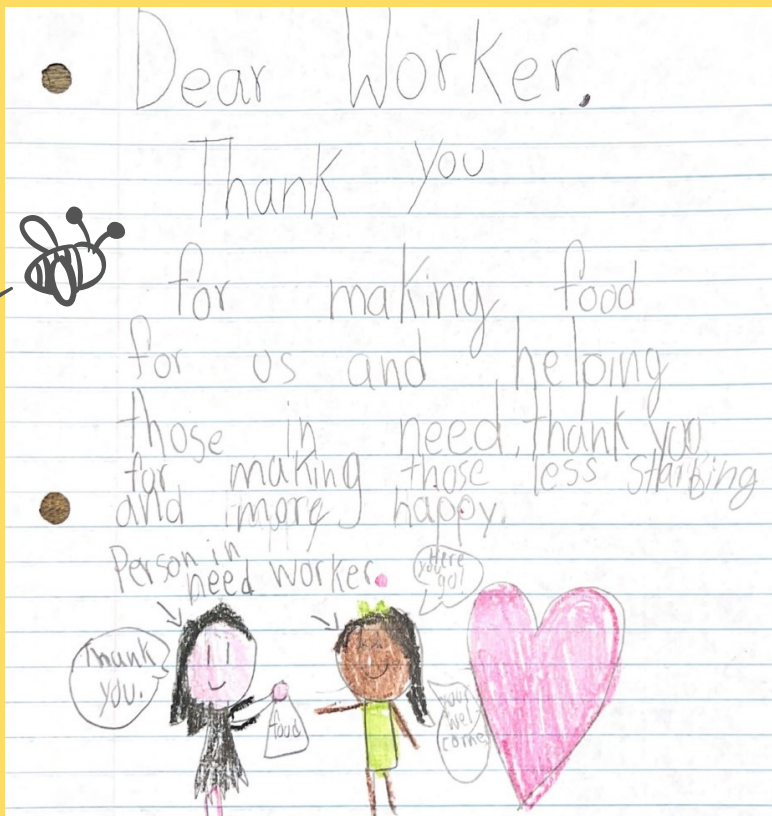 Dear Worker,
Thank you
for making food
for us and helping
those in need, thank you
for making those less starbing
and more happy.
Person in
need worker.
Here
you go!
Thank
you.
food
your
wel
come